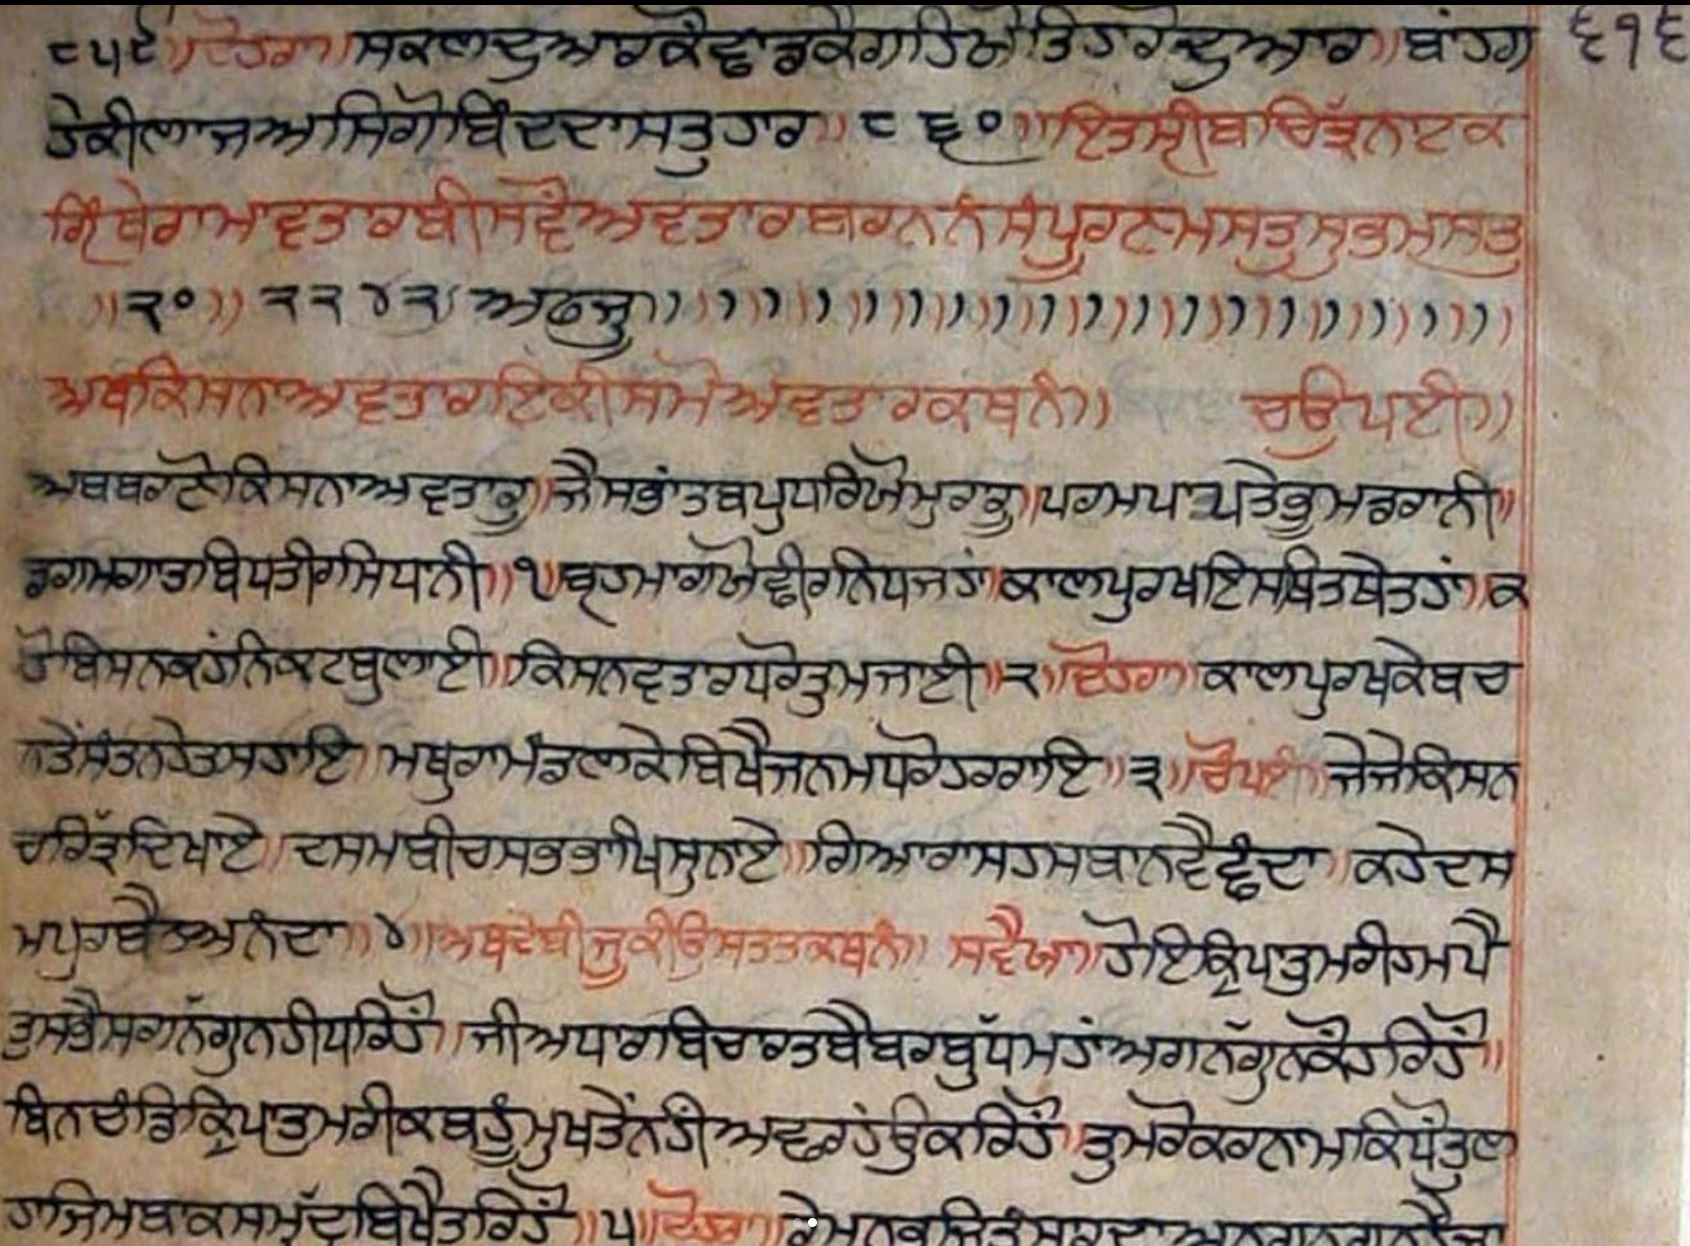 ੮੫੯॥ਦੋਹਰਾ॥ਸਕਲਦੁਆਰਕੌਛਾਡਕੈਗਹਿਓਤਿਹਾਰੋਦੁਆਰ॥ਬਾਂਹਗ ੬੧੬
ਹੇਕੀਲਾਜਅਸਿਗੋਬਿੰਦਦਾਸਤੁਹਾਰ॥੮੬੦॥ਇਤਸ੍ਰੀਬਚਿਤ੍ਰਨਾਟਕ
ਗ੍ਰਿੰਥੇਰਾਮਾਵਤਾਰਬੀਸਵੈਂਅਵਤਾਰਬਰਨਨੰਸੰਪੂਰਣਮਸਤੁਸੁਭਮਸਤੁ
॥੨੦॥ ਅਫਜੂ॥
ਅਥਕਿਸਨਾਅਵਤਾਰਇਕੀਸਮੋਅਵਤਾਰਕਥਨੰ॥ ਚਉਪਈ॥
ਅਬਬਰਣੋਕਿਸਨਾਅਵਤਾਰੂ॥ਜੈਸਭਾਂਤਬਪੁਧਰਿਓਮੁਰਾਰੂ॥ਪਰਮਪਾਪਤੇਭੂਮਡਰਾਨੀ॥
ਡਗਮਗਾਤਬਿਧਤੀਰਸਿਧਾਨੀ॥੧॥ਬ੍ਰਹਮਾਗਯੋਛੀਰਨਿਧਜਹਾਂ॥ਕਾਲਪੁਰਖਇਸਥਿਤਥੇਤਹਾਂ॥ਕ
ਹੋਬਿਸਨਕਹਂਨਿਕਟਬੁਲਾਈ॥ਕਿਸਨਵਤਾਰਧਰੋਤੁਮਜਾਈ॥੨॥ਦੋਹਰਾ॥ਕਾਲਪੁਰਖਕੇਬਚ
ਨਤੇਂਸੰਤਨਹੇਤਸਹਾਇ॥ਮਥੁਰਾਮੰਡਲਕੇਬਿਖੈਜਨਮਧਰੋਹਰਰਾਇ॥੩॥ਚੌਪਈ॥ਜੇਜੇਕਿਸਨ
ਚਰਿਤ੍ਰਦਿਖਾਏ॥ਦਸਮਬੀਚਸਭਭਾਖਿਸੁਨਾਏ॥ਗਿਆਰਾਸਹਸਬਾਨਵੈਛੰਦਾ॥ਕਹੇਦਸ
ਮਪੁਰਬੈਠਅਨੰਦਾ॥੪॥ਅਥਦੇਬੀਜੂਕੀਉਸਤਤਕਥਨੰ॥ ਸਵੈਯਾ॥ਹੋਇਕ੍ਰਿਪਾਤੁਮਰੀਹਮਪੈ
ਤੁਸਭੈਸਗਨੰਗੁਨਹੀਧਰਿਹੋਂ॥ਜੀਅਧਾਰਬਿਚਾਰਤਬੈਬਰਬੁੱਧਮਹਾਂਅਗਨੰਗੁਨਕੌਹਰਿਹੋਂ॥
ਬਿਨਚੰਡਿਕ੍ਰਿਪਾਤੁਮਰੀਕਬਹੂੰਮੁਖਤੇਂਨਹੀਂਅਛਰਹਉਂਕਰਿਹੋਂ॥ਤੁਮਰੋਕਰਨਾਮਕਿਧੋਂਤੁਲ
ਹਾਜਿਮਬਾਕਸਮੁੰਦ੍ਰਬਿਖੈਤਰਿਹੋਂ॥੫॥ਦੋਹਰਾ॥ਰੇਮਨਭਜਿਤੂੰਸਾਰਦਾਅਨਗਨਗੁਨਹੈਜਾ